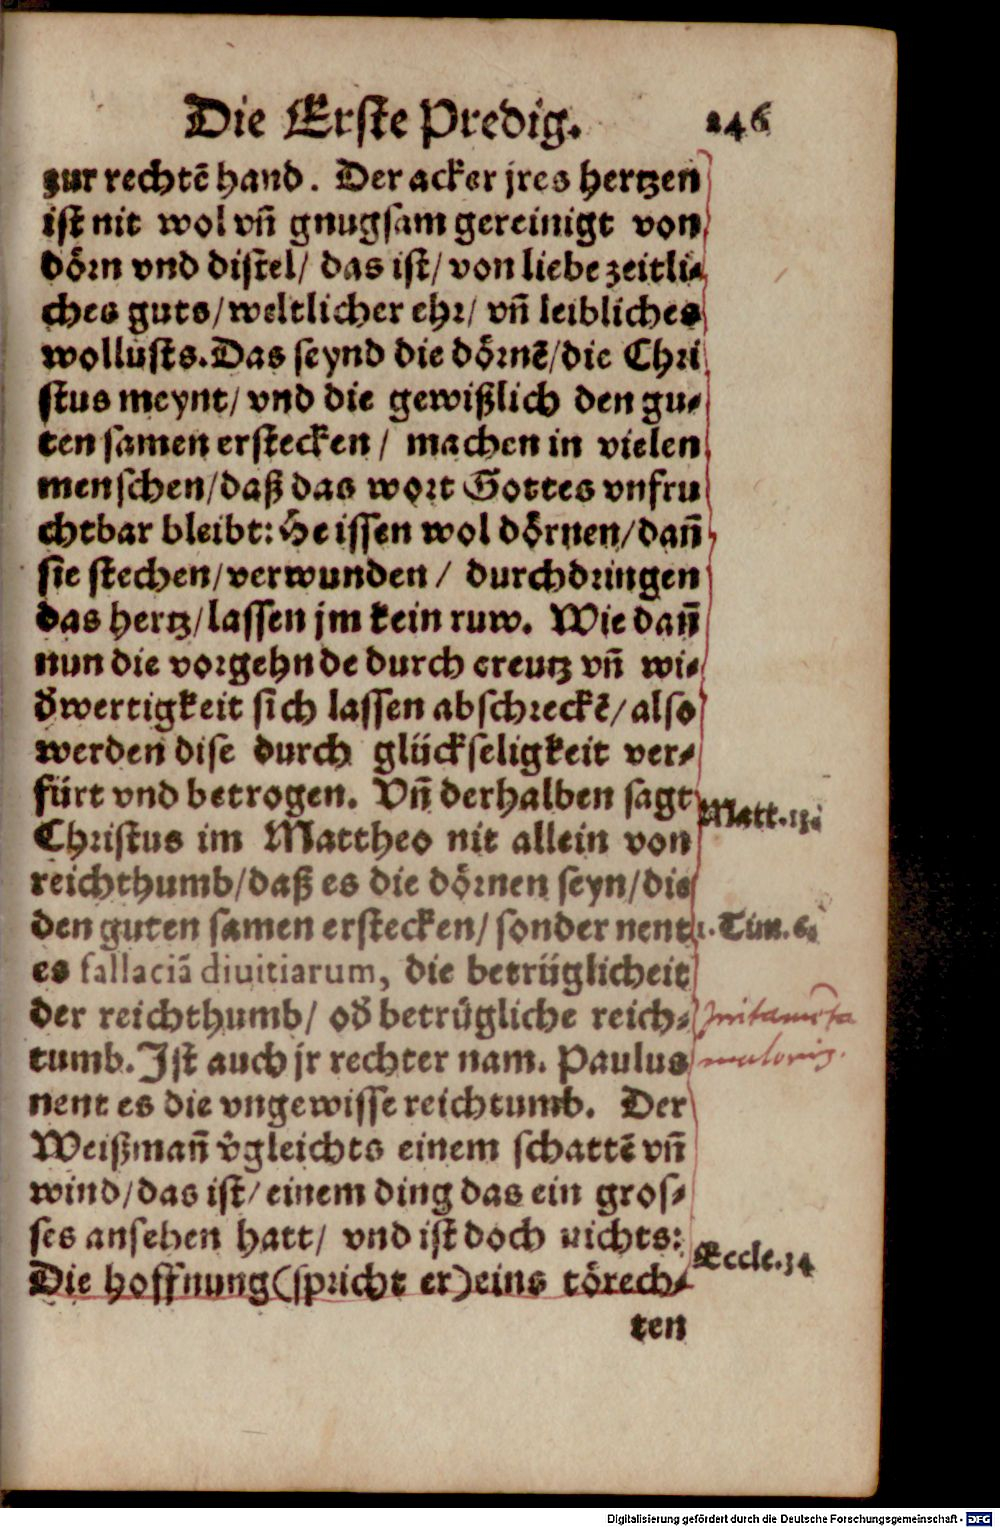 Die Erste Predig. 246
zur rechtē hand. Der acker jres hertzen
ist nit wol vñ gnugsam gereinigt von
dörn vnd distel/ das ist/ von liebe zeitli-
ches guts/ weltlicher ehr/ vñ leibliches
wollusts. Das seynd die dörnē/ die Chri
stus meynt/ vnd die gewißlich den gu-
ten samen erstecken/ machen in vielen
menschen/ daß das wort Gottes vnfru
chtbar bleibt: Heissen wol dörnen/ dañ
sie stechen/ verwunden/ durchdringen
das hertz/ lassen jm kein ruw. Wie dañ
nun die vorgehnde durch creutz vñ wi-
d̓wertigkeit sich lassen abschreckē/ also
werden dise durch glückseligkeit ver-
fürt vnd betrogen. Vñ derhalben sagt
Matt.13.
Christus im Mattheo nit allein von
reichthumb/ daß es die dörnen seyn/ die
den guten samen erstecken/ sonder nent
1. Tim. 6.
es fallaciā diuitiarum, die betrüglicheit
der reichthumb/ od̓ betrügliche reich-
tumb. Ist auch jr rechter nam. Paulus
nent es die vngewisse reichtumb. Der
Weißmañ v̓gleichts einem schattē vñ
wind/ das ist/ einem ding das ein gros-
ses ansehen hatt/ vnd ist doch nichts:
Eccle.34
Die hoffnung (spricht er) eins törech-
ten
Digitalisierung gefördert durch die Deutsche Forschungsgemeinschaft - DFG